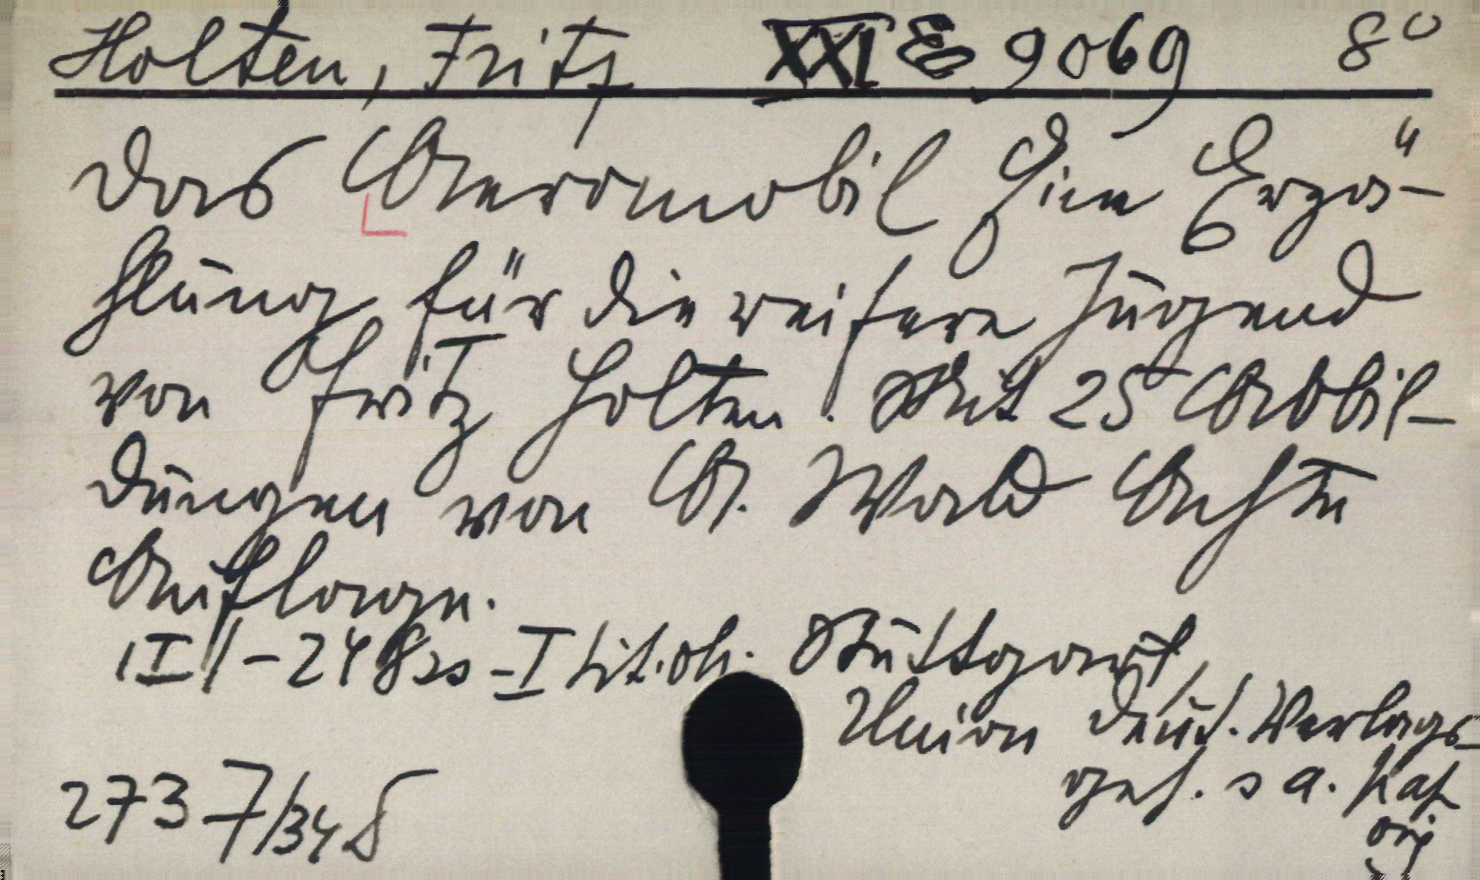 Holten, Fritz XXI E 9069 8°
Das Aeromobil Eine Erzä-
hlung für die reifere Jugend
von Fritz Holten. Mit 25 Abbil-
dungen von A. Wald Achte
Auflage.
II/-248 ss -I tit. Stuttgart,
Union Deut. Verlags-
ges. s a.
273 7/34